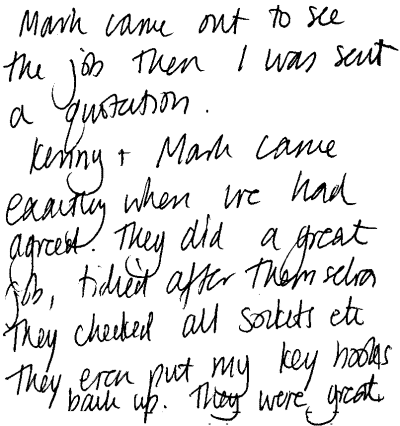 Mark came out to see
the job then I was sent
a quotation.
Kenny + Mark came
exactly when we had
agreed. They did a great
job, tidied after themselves
They checked all sockets etc
They even put my key hooks
back up. They were great.